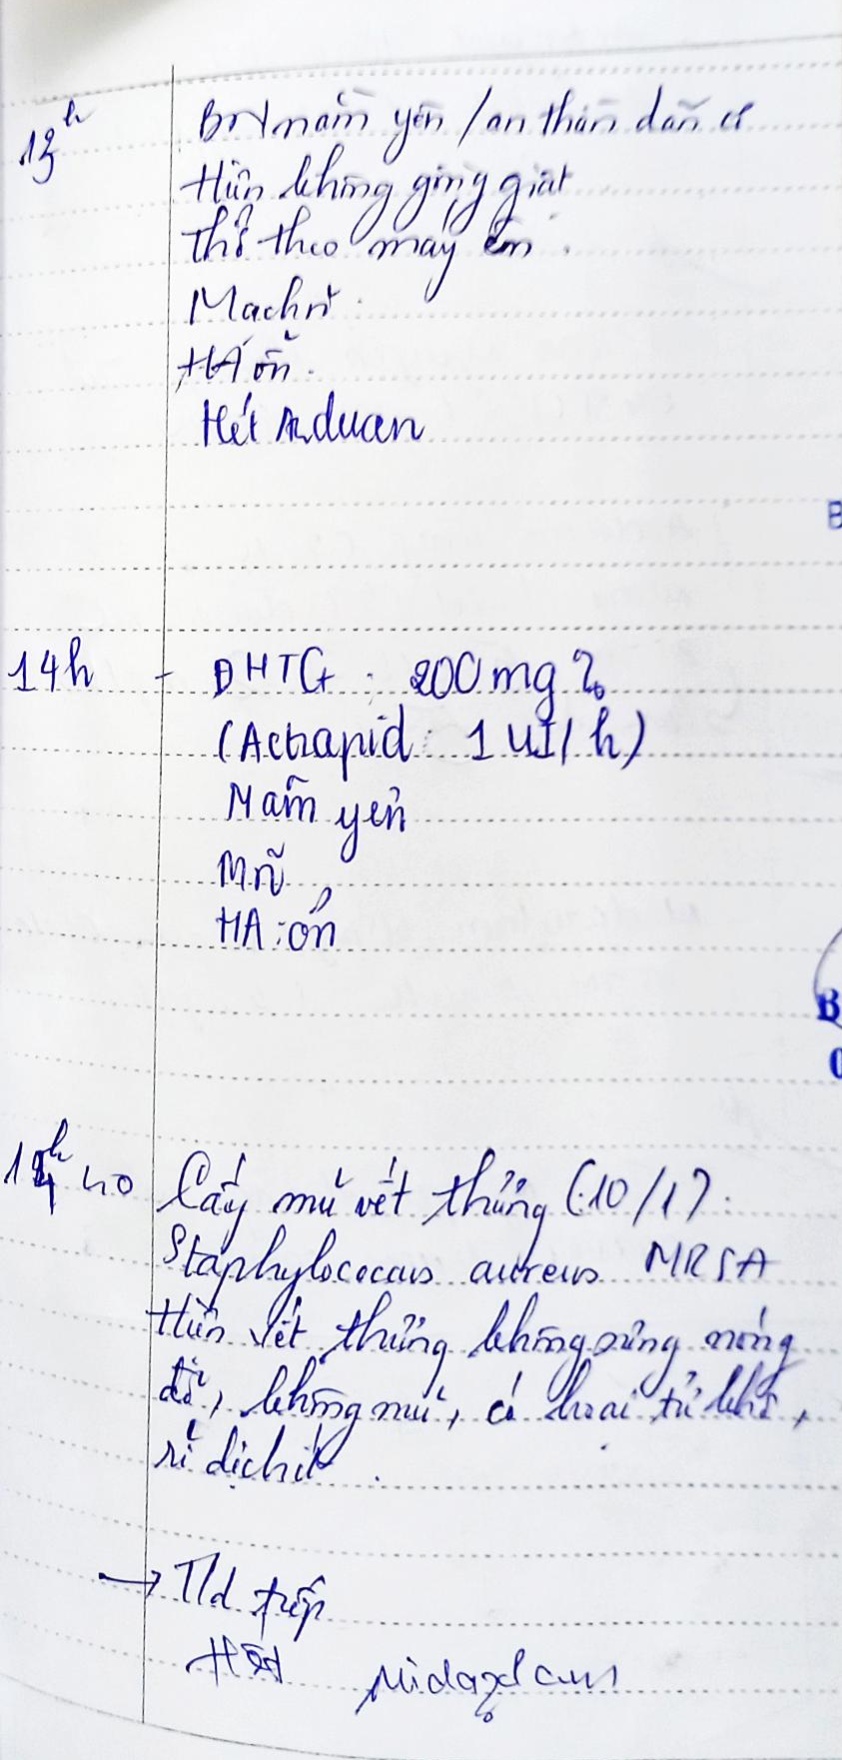 13h
BN nằm yên / an thần dãn cơ
Hiện không gồng giật
Thở theo máy êm.
Mạch rõ
HA ổn.
Hết Arduan
14h - ĐHTG: 200 mg%
(Actrapid: 1 UI/h)
Nằm yên
M rõ
HA: ổn
14h40 Cấy mủ vết thương (10/1):
Staphylococcus aureus MRSA
Hiện vết thương không sưng nóng
đỏ, không mủ, có hoại tử khô,
rỉ dịch ít.
→ T/d tiếp
Hết Midazolam
B
B